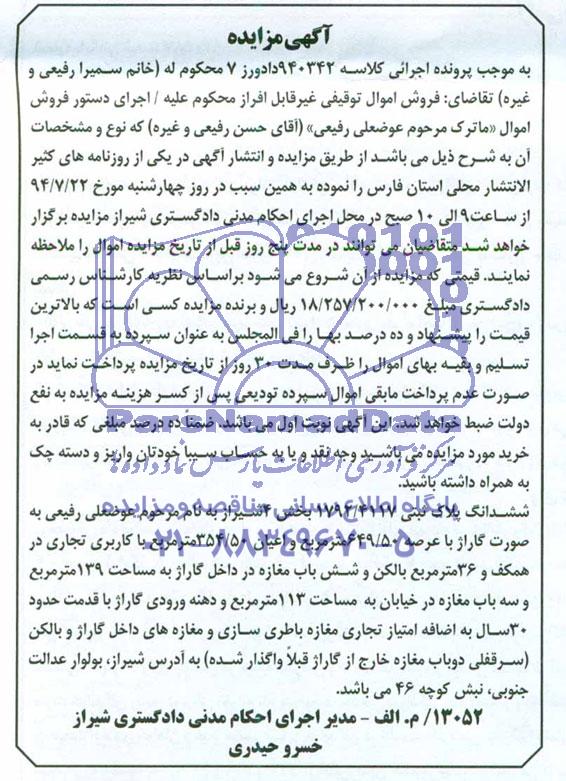 آگهی مزایده
به موجب پرونده اجرائی کلاسه ۹۴۰۳۴۲دادورز ۷ محکوم له (خانم سمیرا رفیعی و
غیره) تقاضای: فروش اموال توقیفی غیرقابل افراز محکوم علیه / اجرای دستور فروش
اموال «ماترک مرحوم عوضعلی رفیعی» (آقای حسن رفیعی و غیره) که نوع و مشخصات
آن به شرح ذیل می باشد از طریق مزایده و انتشار آگهی در یکی از روزنامه های کثیر
الانتشار محلی استان فارس را نموده به همین سبب در روز چهارشنبه مورخ ۹۴/۷/۲۲
از ساعت۹ الی ۱۰ صبح در محل اجرای احکام مدنی دادگستری شیراز مزایده برگزار
خواهد شد متقاضیان می توانند در مدت پنج روز قبل از تاریخ مزایده اموال را ملاحظه
نمایند. قیمتی که مزایده از آن شروع می شود براساس نظریه کارشناس رسمی
دادگستری مبلغ ۱۸/۲۵۷/۲۰۰/۰۰۰ ریال و برنده مزایده کسی است که بالاترین
قیمت را پیشنهاد و ده درصد بها را فی المجلس به عنوان سپرده به قسمت اجرا
تسلیم و بقیه بهای اموال را ظرف مدت ۳۰ روز از تاریخ مزایده پرداخت نماید در
صورت عدم پرداخت مابقی اموال سپرده تودیعی پس از کسر هزینه مزایده به نفع
دولت ضبط خواهد شد. این آگهی نوبت اول می باشد. ضمناً ده درصد مبلغی که قادر به
خرید مورد مزایده می باشید وجه نقد و یا به حساب سیبا خودتان واریز و دسته چک
به همراه داشته باشید.
ششدانگ پلاک ثبتی بخش ۴ شیراز به نام مرحوم عوضعلی رفیعی به
صورت گاراژ با عرصه ۶۴۹/۵۰مترمربع و اعیان ۳۵۴/۵۰مترمربع با کاربری تجاری در
همکف و ۳۶مترمربع بالکن و شش باب مغازه در داخل گاراژ به مساحت ۱۳۹مترمربع
و سه باب مغازه در خیابان به مساحت ۱۱۳مترمربع و دهنه ورودی گاراژ با قدمت حدود
۳۰سال به اضافه امتیاز تجاری مغازه باطری سازی و مغازه های داخل گاراژ و بالکن
(سرقفلی دوباب مغازه خارج از گاراژ قبلاً واگذار شده) به آدرس شیراز، بولوار عدالت
جنوبی، نبش کوچه ۴۶ می باشد.
۱۳۰۵۲/ م. الف - مدیر اجرای احکام مدنی دادگستری شیراز
خسرو حیدری
ParsNamadData
مرکز فرآوری اطلاعات پارس نماد داده ها
پایگاه اطلاع رسانی مناقصه و مزایده
۰۲۱-۸۸۳۴۹۶۷۰-۵